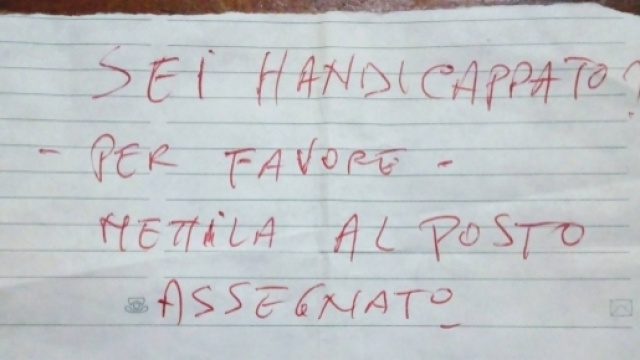 SEI HANDICAPPATO?
- PER FAVORE -
METTILA AL POSTO
ASSEGNATO